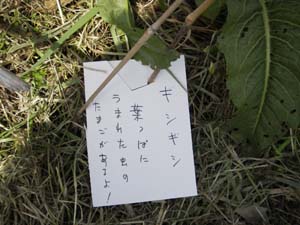 ギシギシ
葉っぱに
うまれた虫の
たまごがあるよ!